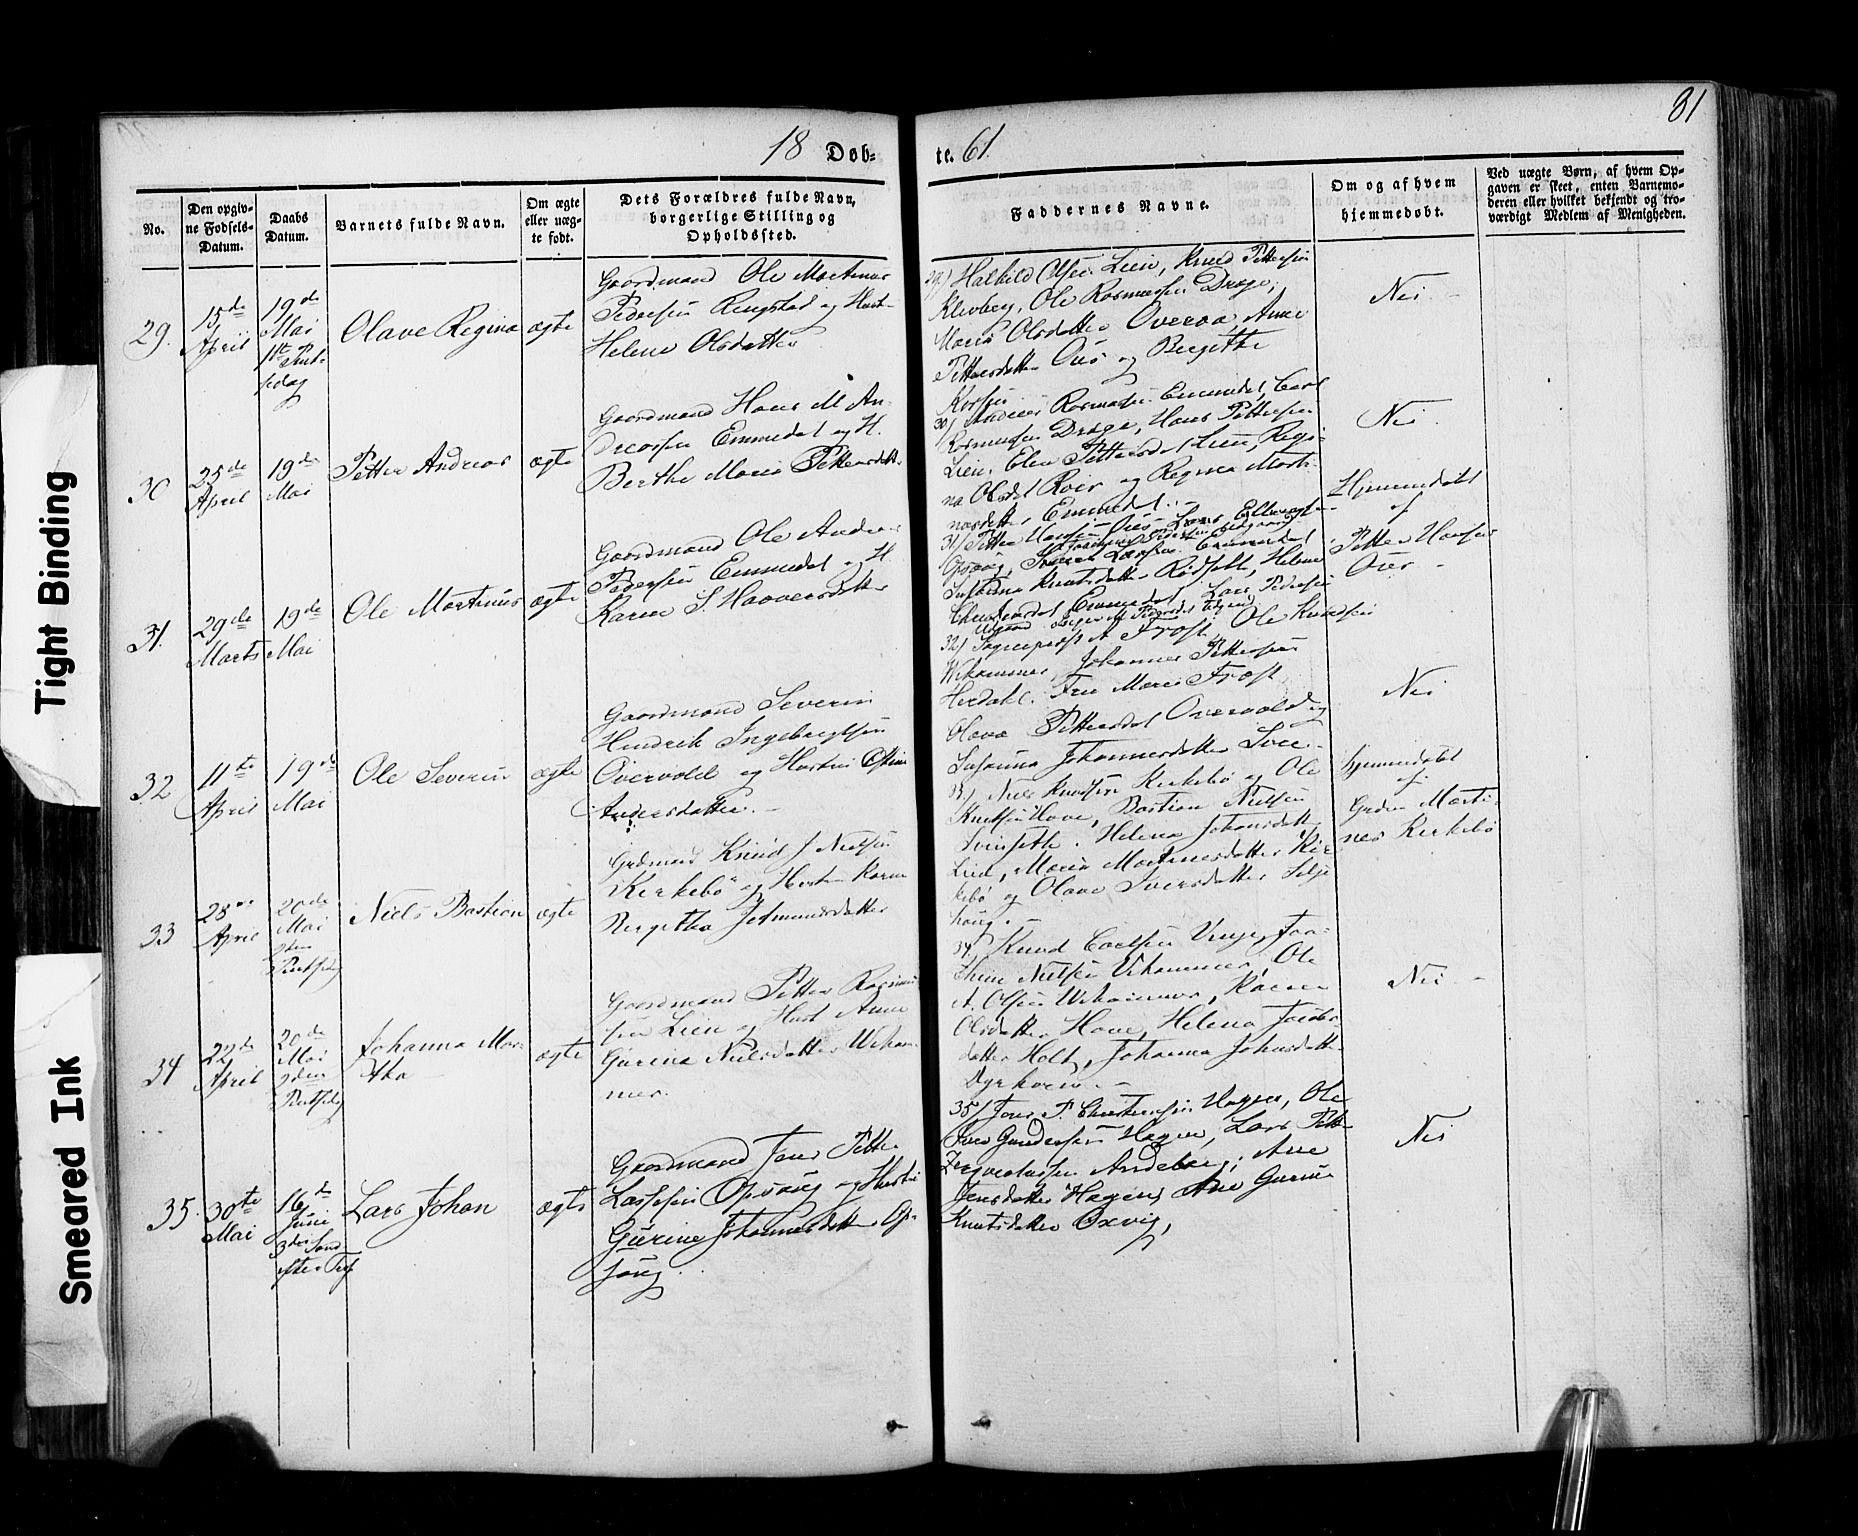 81
18 Døb-
te. 61.
No.
Den opgiv-
ne Fødsels-
Datum.
Daabs
Datum.
Barnets fulde Navn.
Om ægte
eller uæg-
te født.
Dets Forældres fulde Navn,
borgerlige Stilling og
Opholdssted.
Faddernes Navne.
Om og af hvem
hjemmedøbt.
Ved uægte Børn, af hvem Op-
gaven er skeet, enten Barnemo-
deren eller hvilket bekjendt og tro-
værdigt Medlem af Menigheden.
29.
15de
April
19de
Mai
1ste Pint-
sedag
Olave Regina
ægte
Gaardmand Ole Martinus
Pedersen Ringstad og Hust-
Helene Olsdatter
29/ Halkild Olsen Lien, Knud Pettersen
Klevberg, Ole Rasmussen Drage,
Maria Olsdatter Overaa, Ane
Pettersdatter Ous og Bergitha
Nei -
30
25de
April
19de
Mai
Petter Andreas
ægte
Gaardmand Hans M. An-
dreassen Emmedal og H.
Berthe Maria Pettersdatt.
30/ Andreas Rasmussen Emmedal, Carl
Rasmussen Drage, Hans Pettersen
Lien, Elen Pettersdat Lien, Regi-
na Olsdat Roir og Regina Marti-
nusdatter Emmedal. -
Nei.
31.
29de
Marts
19de
Mai
Ole Martinus
ægte
Gaardmand Ole Andreas
Pedersen Emmedal og H.
Karen S. Haaversdatter
31/ Petter Hansen Ous, Lars
Susanna Knutsdatter Rødsæth, Helene
Emmedal, Lars Pedersen
Hjemmedøbt
af
Petter Hansen
Ous -
32
11te
April
19de
Mai
Ole Severin
ægte
Gaardmand Severin
Hendrik Ingebregtsen
Overvold og Hustru
Andersdatter. -
32/ Sognepræst A Frost, Ole Knudsen
Wikhammer, Johannes Pettersen
Herdahl. Fru Maria Frost,
Olava Pettersdat Overvold og
Susanna Johannesdatter
Nei
33
April
20de
Mai
2den
Pintsedag
Niels Bastian
ægte
Grdmand Knud J Nielsen
Kirkebø og Hustru Karen
Bergitha Jetmundsdatter
33/ Niels Knudsen Kirkebø og Ole
Knudsen Hove, Bastian Nielsen
Helena Johansdatt.
Lied, Maria Martinusdatter Kir-
kebø og Olave Iversdatter Selje-
haug.
Hjemmedøbt
af
Marti-
nus Kirkebø
34
22de
April
20de
Mai
2den
Pintsedag
Johanna Mar-
tha
ægte
Gaardmand Petter Rasmus-
sen Lien og Hust Anne
Gurina Nielsdatter Wikham-
mer.
34/ Knud Carlsen Vinje,
Nielsen Wikhammer, Ole
A. Olsen Wikhammer, Karen
Olsdatter Hove, Helena Jacobs-
datter Holt, Johanna Johnsdatter
Dyrkorn. -
Nei -
35.
30te
Mai
16de
Juni
3die Sønd
efter Tref
Lars Johan
ægte
Gaardmand Jens Petter
Larssen Opsaug og Hustru
Gurine Johannesdatter Op-
saug.
35/ Jens P. Christensen Hagen, Ole
Iver Gundersen Hagen, Lars Pett-
Andeberg, Ane
Jensdatter Hagen, Ane Gurine
Knutsdatter Oxvig,
Nei
Tight Binding
Smeared Ink